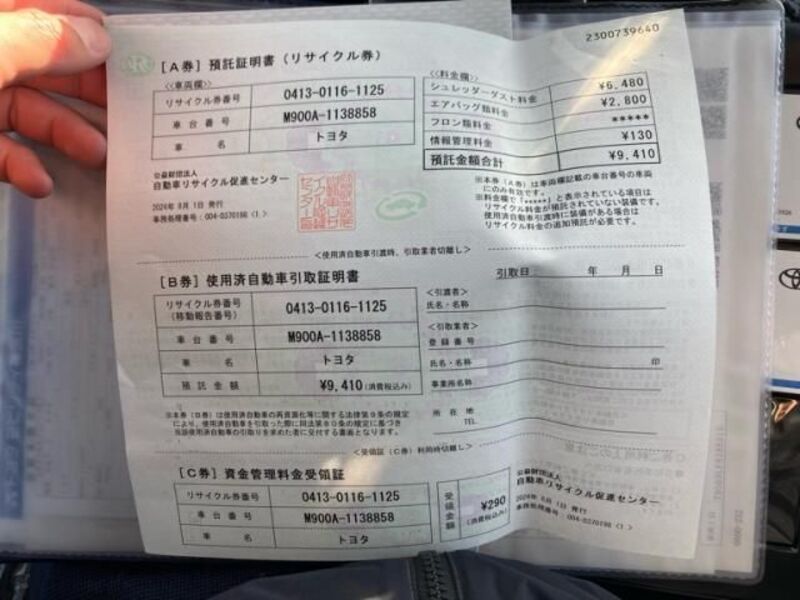 2300739640
[A券] 預託証明書(リサイクル券)
<車両欄>
リサイクル券番号 0413-0116-1125
車台番号 M900A-1138858
車名 トヨタ
<料金欄>
シュレッダーダスト料金 ¥6,480
エアバッグ類料金 ¥2,800
フロン類料金 *****
情報管理料金 ¥130
預託金額合計 ¥9,410
公益財団法人
自動車リサイクル促進センター
2024年 8月 1日 発行
事務処理番号:004-0370198(1)
※本券(A券)は車両欄記載の車台番号の車両
にのみ有効です。
※料金欄で「*****」と表示されている項目は
リサイクル料金が預託されていない装備です。
使用済自動車引渡時に装備がある場合は
リサイクル料金の追加預託が必要です。
<使用済自動車引渡時、引取業者切離し>
[B券] 使用済自動車引取証明書
引取日: 年 月 日
リサイクル券番号
(移動報告番号) 0413-0116-1125
車台番号 M900A-1138858
車名 トヨタ
預託金額 ¥9,410(消費税込み)
<引渡者>
氏名・名称
<引取業者>
登録番号
氏名・名称 印
事業所名称
所在地
TEL
※本券(B券)は使用済自動車の再資源化等に関する法律第9条の規定
により、使用済自動車を引取った際に同法第80条の規定に基づき
当該使用済自動車の引取りを求めた者に交付する書面となります。
<受領証(C券)利用時切離し>
[C券] 資金管理料金受領証
リサイクル券番号 0413-0116-1125
車台番号 M900A-1138858
車名 トヨタ
受領金額 ¥290
(消費税込み)
公益財団法人
自動車リサイクル促進センター
2024年 8月 1日 発行
事務処理番号:004-0370198(1)